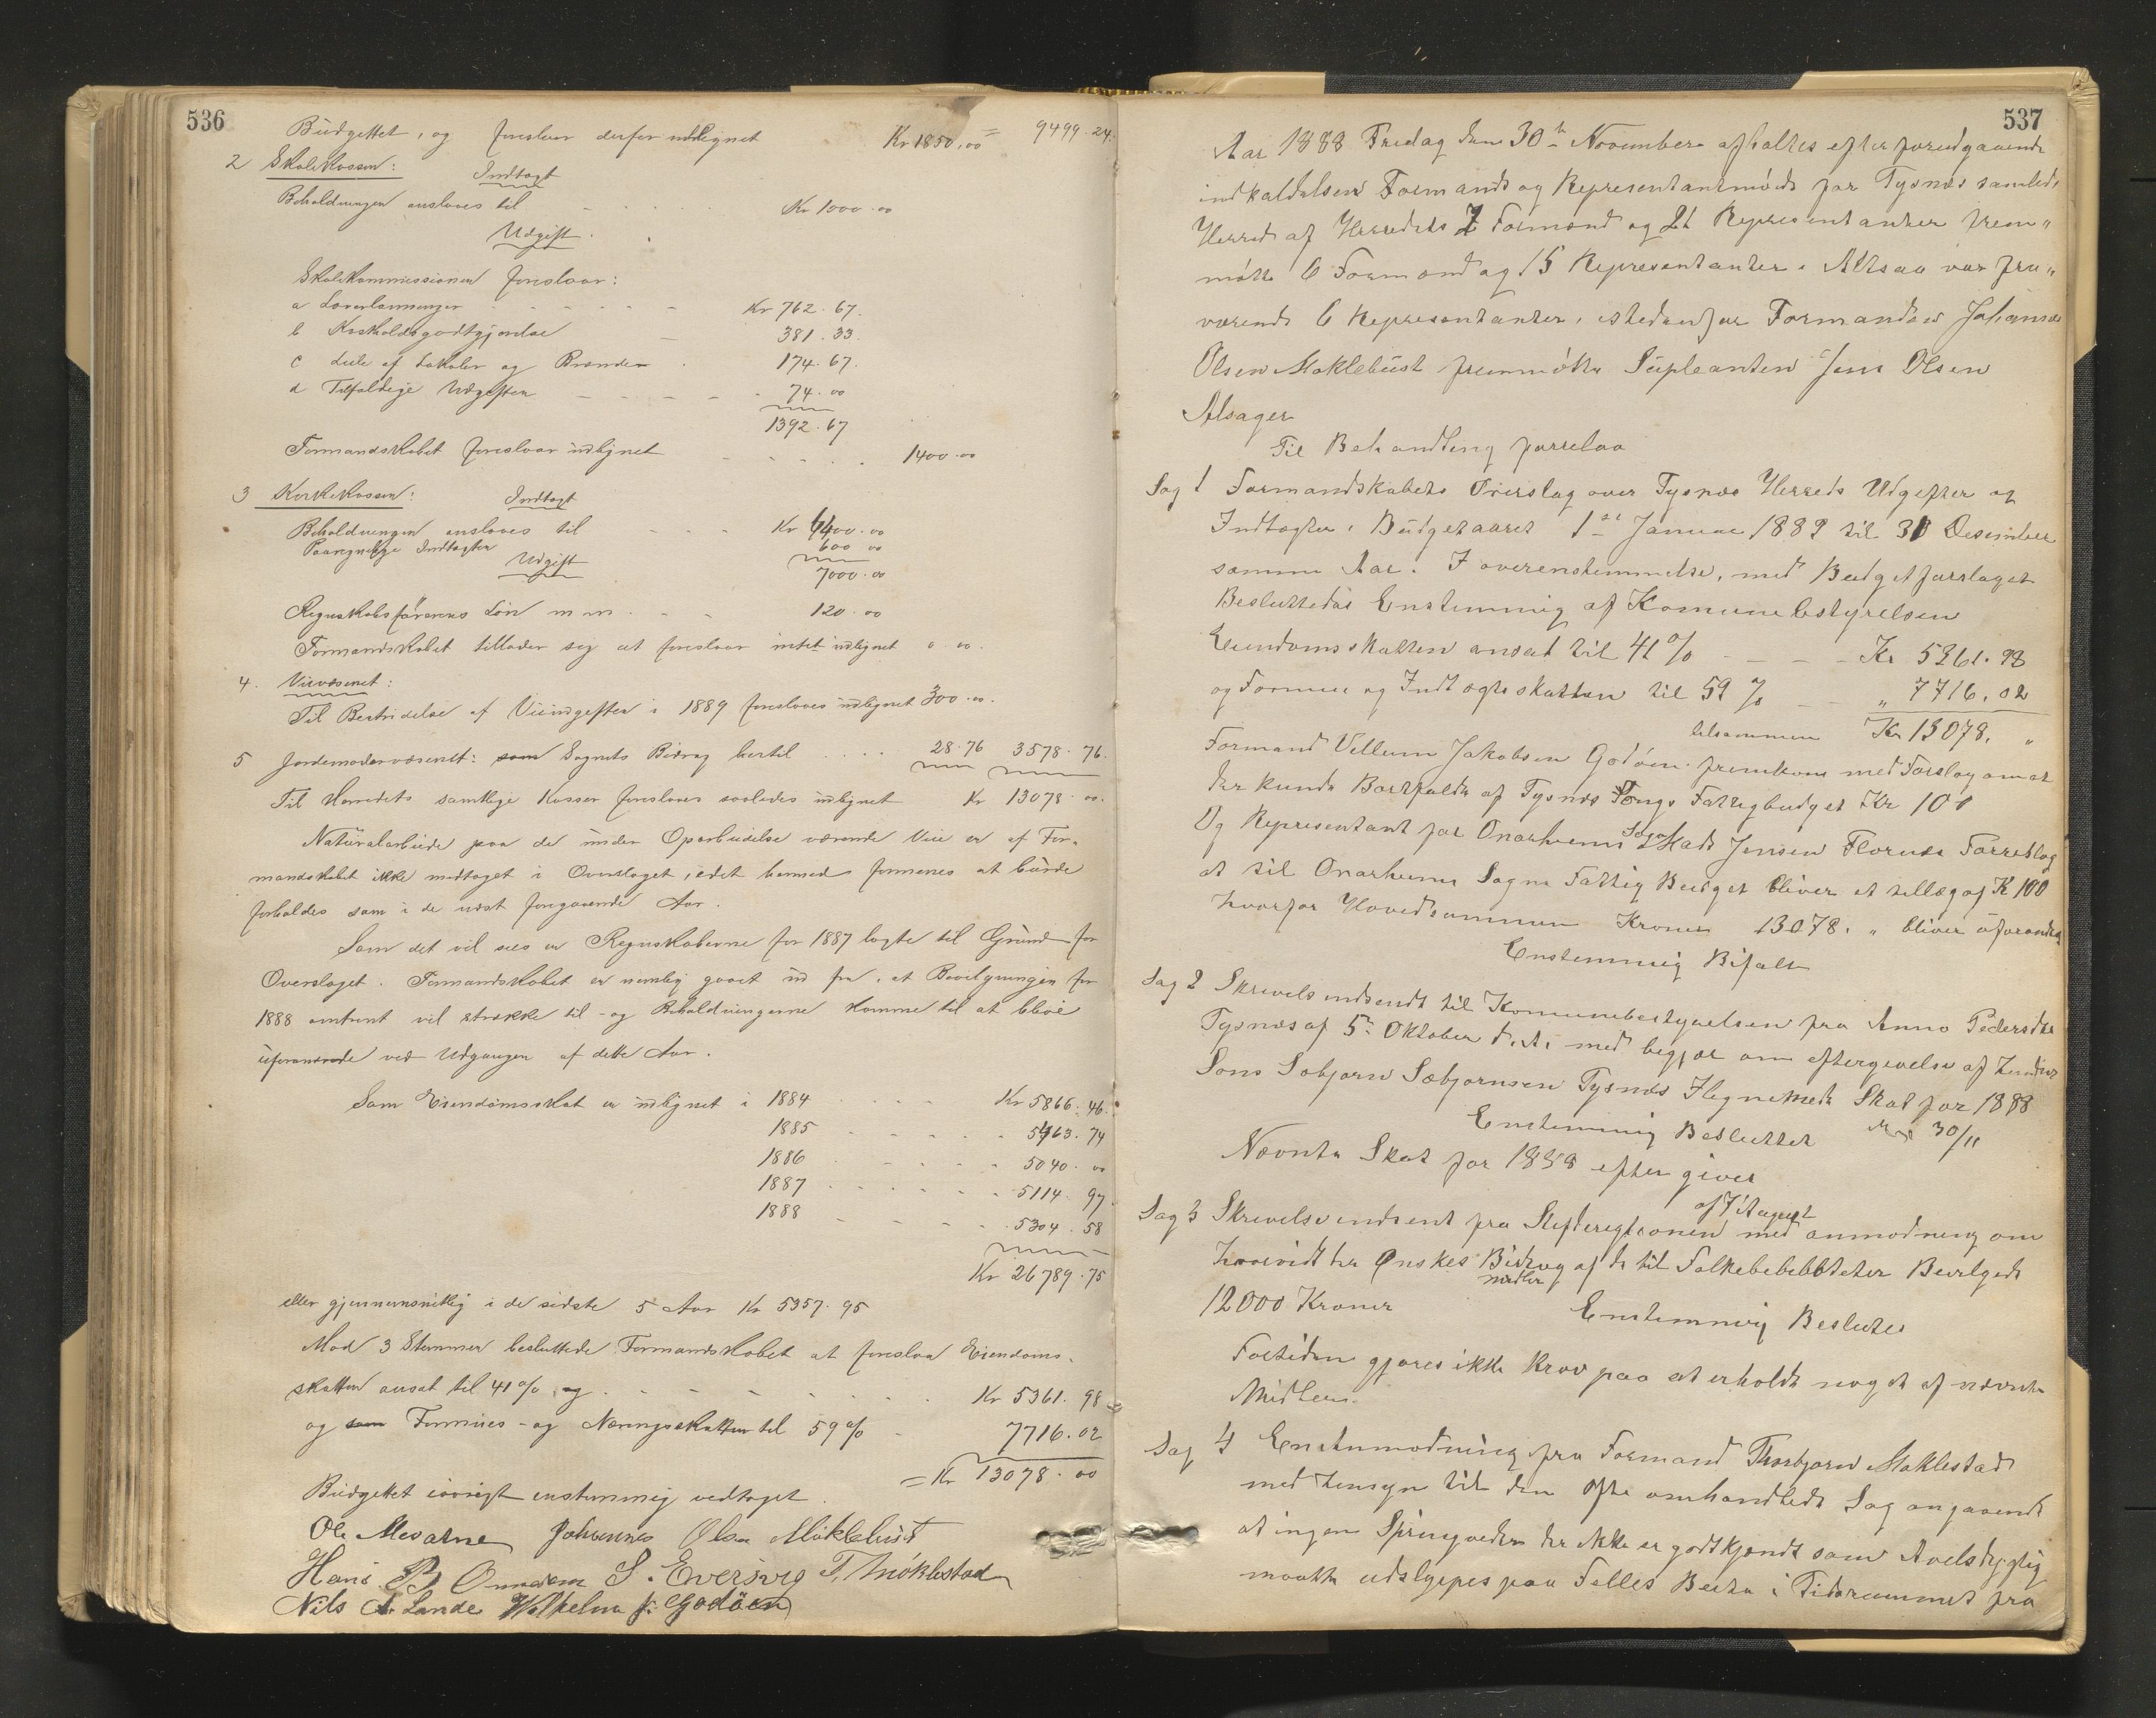 536
Budgettet, og foreslaar derfor udlignet Kr 1850,00 = 9499.24.
2 Skolekassen: Indtægt
Beholdningen ansloaes til Kr 1000.00
Udgift.
Skolekommissionen foreslaar:
a Lærerlønninger Kr 762.67.
b Kostholdsgodtgjørelse 381.33.
c Leie af Lokaler og Brænde 174.67.
d Tilfældige Udgifter 74.00
1392.67
Formandskabet foreslaar udlignet 1400.00
3 Kirkekassen: Indtægt
Beholdningen ansloaes til Kr 6400.00
Paaregnelige Indtægter 600 00
Udgift 7000.00
Regnskabsførerens Løn m m 120.00
Formandskabet tillader sig at foreslaa intet udlignet 0 00.
4. Veivæsenet:
Til Bestridelse af Veiudgifter i 1889 foreslaaes udlignet 300.00.
5 Jordemodervæsenet: som Sognets Bidrag hertil 28.76 3578.76.
Til Herredets samtlige Kasser foreslaaes saaledes udlignet Kr 13078.00.
Naturalarbeide paa de under Oparbeidelse værende Veie er af For-
mandskabet ikke medtaget i Overslaget, idet hermed formenes at burde
forholdes som i de næst foregaaende Aar.
Som det vil sees er Regnskaberne for 1887 lagte til Grund for
Overslaget. Formandskabet er nemlig gaaet ud fra, at Bevilgningen for
1888 omtrent vil strække til - og Beholdningerne komme til at blive
uforandrede ved Udgangen af dette Aar.
Som Eiendomsskat er udlignet i 1884 Kr 5866.46.
1885 5463.74
1886 5040.00
1887 5114.97
1888 5304.58
Kr 26789.75
eller gjennemsnitlig i de sidste 5 Aar Kr 5357.95
Mod 3 Stemmer besluttede Formandskabet at foreslaa Eiendoms-
skatten ansat til 41 % og Kr 5361.98
og som Formues- og Næringsskatten til 59 % 7716.02
= Kr 13078.00
Budgettet iøvrigt enstemmig vedtaget.
Ole Mevatne Johannes Olsen Møklebust
Hans P Onarem S. Eversvig T. Møklestad
Nils A. Lande Wilhelm J. Godöen
537
Aar 1888 Fredag den 30te November afholtes efter forudgaaende
indkaldelsen Formands og Representantmøde for Tysnæs samlede
Herred af Herredets 7 Formænd og 21 Representanter frem"
møtte 6 Formænd og 15 Representanter. Altsaa var fra"
værende 6 Representanter, istedenfor Formanden Johannes
Olsen Møklebust fremmøtte Supleanten Jens Olsen
Alsager
Til Behandling forrelaa
Sag 1 Formandskabets Overslag over Tysnæs Herreds Udgifter og
Indtægter i Budgetaaret 1ste Januar 1889 til 31 Desember
samme Aar. I overenstemmelse, med Budgetforslaget
Besluttedes Enstemmig af Komunebestyrelsen
Eiendomsskatten ansat til 41 % Kr 5361.98
og Formue og Indtægtsskatten til 59 % " 7716.02
tilsammen Kr 13078. "
Formand Villum Jakobsen Godøen fremkom med Forslag om at
der kunde Bortfalde af Tysnæs Songs Fattigbudget Kr 100
Og Representant for Onarheims Sogn Mads Jensen Flornes Forreslog
at til Onarheims Sogns Fattig Budget bliver et tillæg af K 100
hvorfor Hovedsummen Kroner 13078. " bliver uforandret
Enstemmig Bifalt
Sag 2 Skrivels indsendt til Komunebestyrelsen fra Anna Pedersdtr
Tysnæs af 5te Oktober d.A. med begjær om eftergivelse af hendes
Søns Sæbjørn Sæbjørnsen Tysnæs Ilegnede Skat for 1888
Enstemmig Besluttet 30/11
Nævnte Skat for 1888 efter gives
Sag 3 Skrivelse indsent fra Stiftsregtionen af 7 August med anmodning om
hvorvidt her Ønskes Bidrag af de til Folkebebebloteker Bevilgede midler
12000 Kroner Enstemmig Beslutet
Fortiden gjøres ikke Krav paa at erholde noget af nævnte
Midlem.
Sag 4 Enstumodning fra Formand Thorbjørn Møklestad
med hensyn til den ofte omhandlede Sag angaaende
at ingen Springveder der ikke er godtkjendt som Avelsdygtig
maatte udslyppes paa Felles Beite i Tidsrummet fra